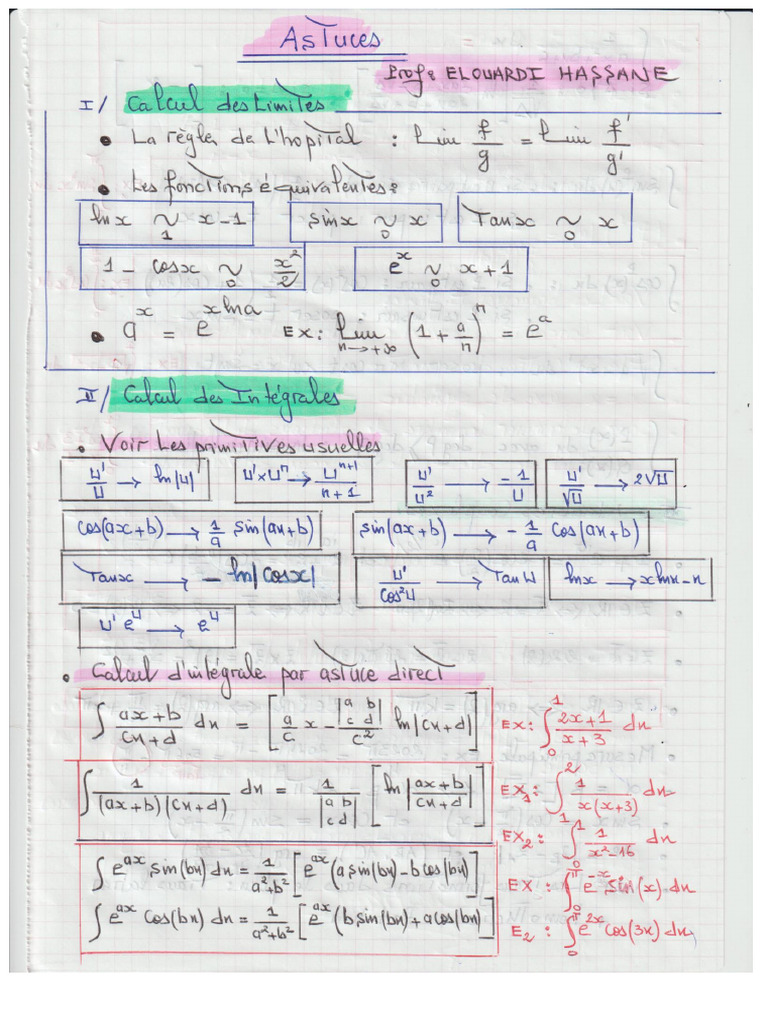 Astuces
Prof: ELOUARDI HASSANE
I/ Calcul des Limites
• La règle de L'hopital : Lim f/g = Lim f'/g'
• Les fonctions équivalentes:
ln x ~₁ x-1    sin x ~₀ x    Tan x ~₀ x
1 - cos x ~₀ x²/2    eˣ ~₀ x+1
• aˣ = e^(x ln a)    EX: Lim_(n→+∞) (1 + a/n)ⁿ = eᵃ
II/ Calcul des Intégrales
• Voir Les primitives usuelles
u'/u → ln|u|    u'×uⁿ → uⁿ⁺¹/(n+1)    u'/u² → -1/u    u'/√u → 2√u.
cos(ax+b) → 1/a sin(ax+b)    sin(ax+b) → -1/a cos(ax+b)
Tan x → - ln|cos x|    u'/cos²u → Tan u    ln x → x ln x - x
u' eᵘ → eᵘ
• Calcul d'intégrale par astuce direct
∫ (ax+b)/(cx+d) dx = [a/c x - |a b; c d|/c² ln|cx+d|]    EX: ∫₀¹ (2x+1)/(x+3) dx
∫ 1/((ax+b)(cx+d)) dx = 1/|a b; c d| [ln|(ax+b)/(cx+d)|]    EX₁: ∫₁² 1/(x(x+3)) dx
EX₂: ∫₀¹ 1/(x²-16) dx
∫ eᵃˣ sin(bx) dx = 1/(a²+b²) [eᵃˣ (a sin(bx) - b cos(bx)]    EX: ∫₀^π e⁻ˣ sin(x) dx
∫ eᵃˣ cos(bx) dx = 1/(a²+b²) [eᵃˣ (b sin(bx) + a cos(bx)]    E₂: ∫₀^π e²ˣ cos(3x) dx